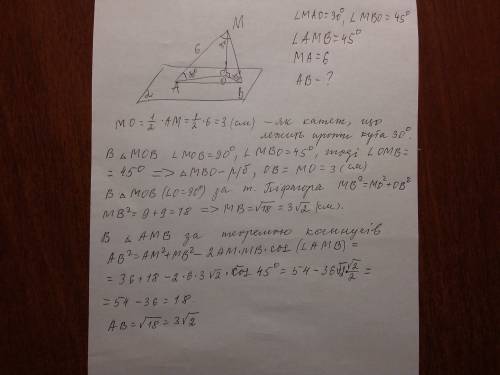 ∠MAO=30°, ∠MBO=45°
∠AMB=45°
MA=6
AB-?
M
6
30°
45°
O
A
B
α
MO=1/2·AM=1/2·6=3(см) - як катет, що
лежить проти кута 30°
В △MOB ∠MOB=90°, ∠MBO=45°, тоді ∠OMB=
=45° => △MBO-р/б, OB=MO=3(см)
В △MOB (∠O=90°) за т. Піфагора MB²=MO²+OB²
MB²=9+9=18 => MB=√18=3√2 (см).
В △AMB за теоремою косинусів
AB²=AM²+MB²-2AM·MB·cos(∠AMB)=
=36+18-2·6·3√2·cos 45°=54-36√2·√2/2=
=54-36=18
AB=√18=3√2